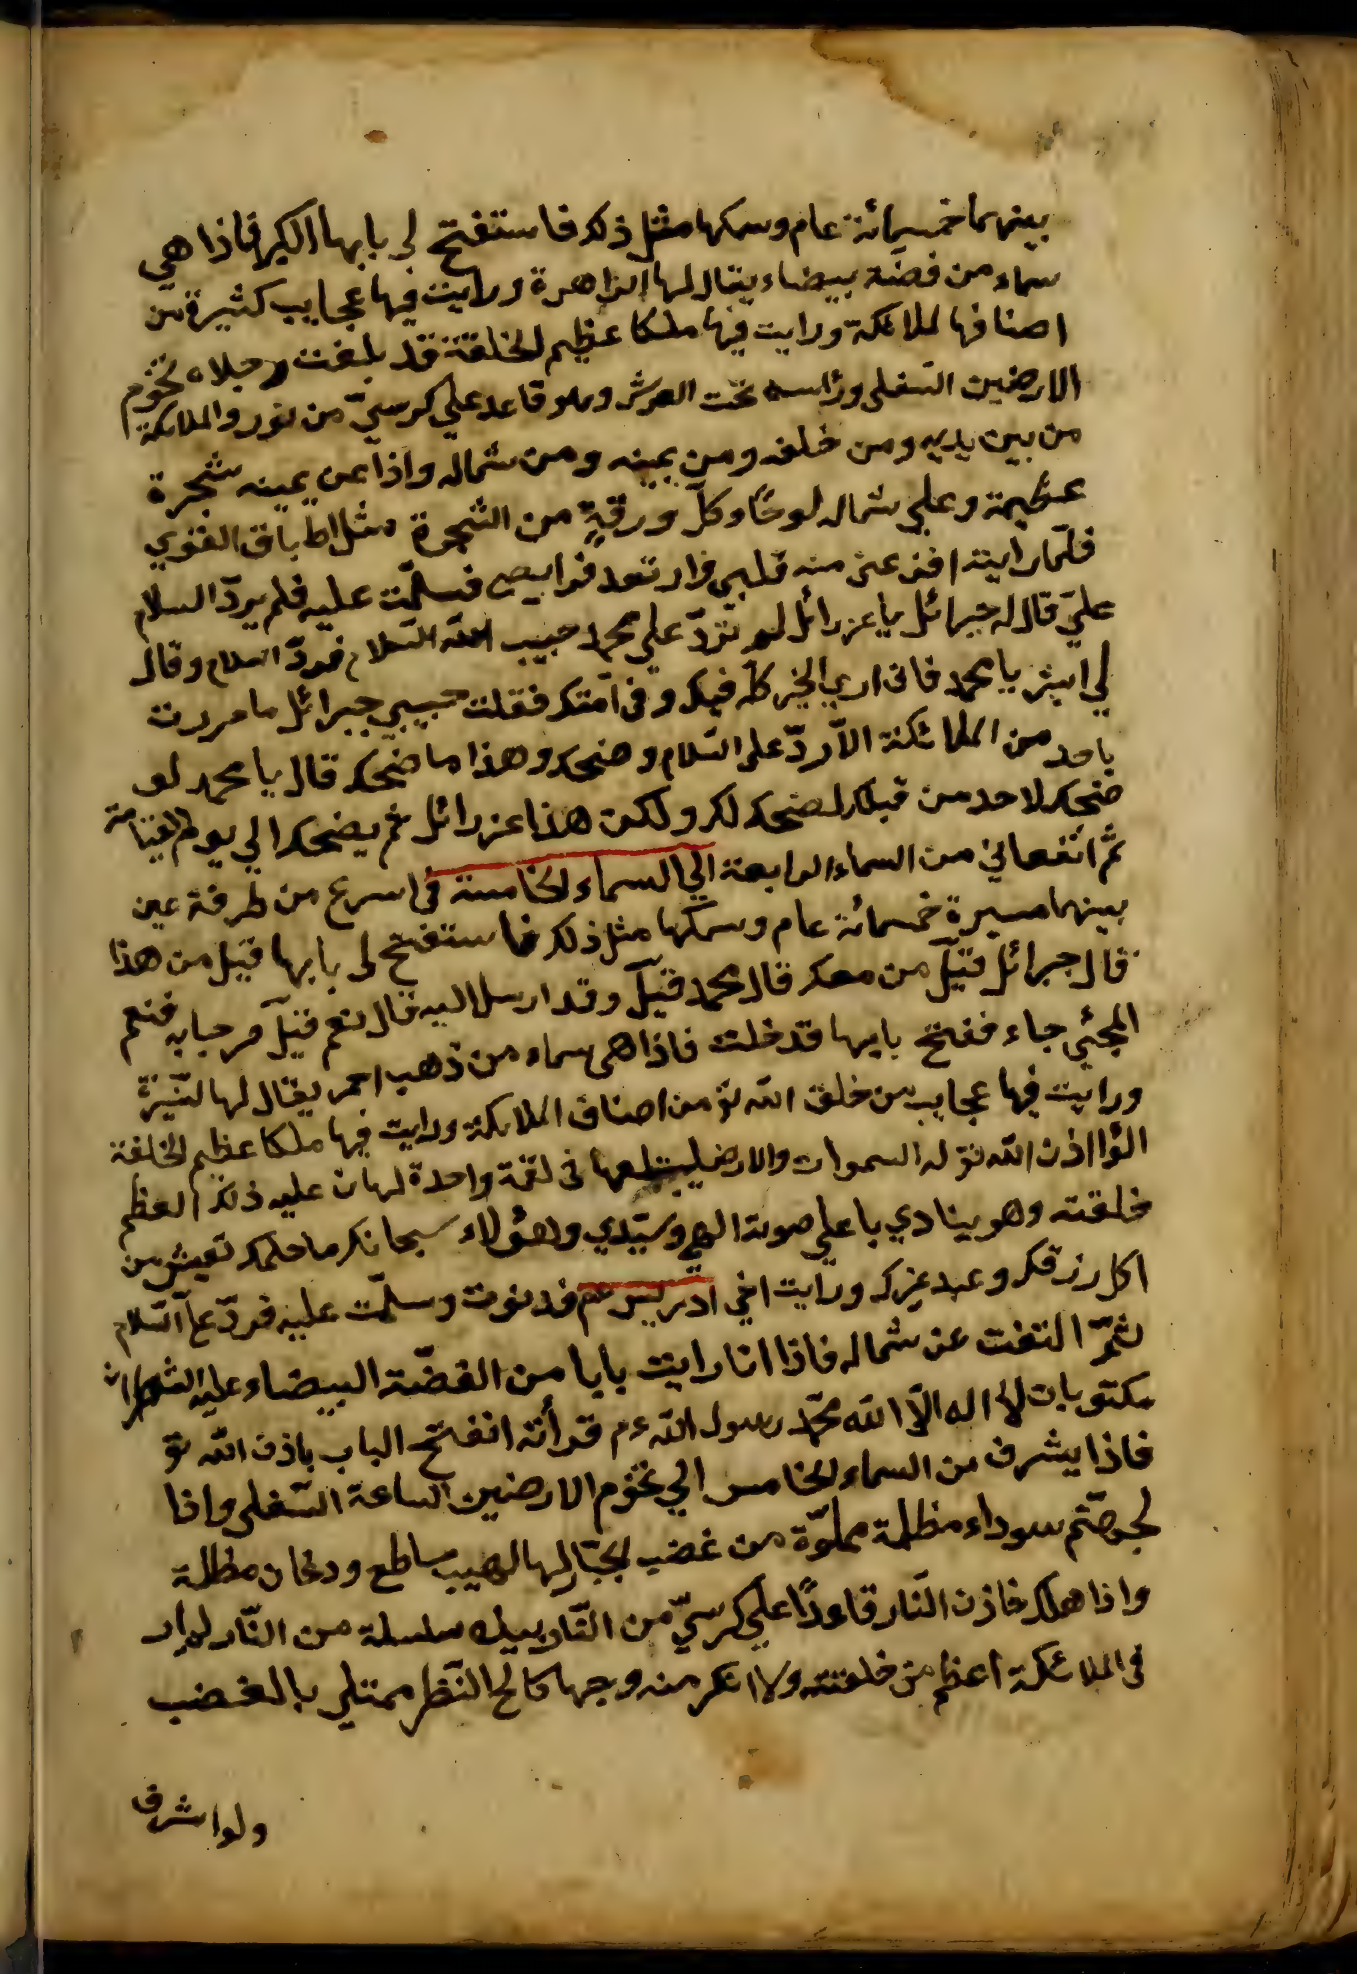 بينهما خمسمائة عام وسمكها مثل ذلك فاستفتح لي بابها الكبر فاذا هي
سماء من فضة بيضاء يقال لها الزاهرة ورايت فيها عجايب كثيرة من
اصنافها الملائكة ورايت فيها ملكا عظيم الخلقة قد بلغت رجلاه تخوم
الارضين السفلى وراسه تحت العرش وهو قاعد علي كرسيّ من نور والملائكة
من بين يديه ومن خلفه ومن يمينه ومن شماله واذا عن يمينه شجرة
عظيمة وعلي شماله لوحًا وكلّ ورقةٍ من الشجرة مثل اطباق
فلمّا رايته افزعني منه قلبي وارتعد فرايصي فسلّمت عليه فلم يردّ السلام
عليّ قال له جبرائل يا عزرائل لم تردّ علي محمد حبيب الله السّلام فردّ السلام وقال
لي ابشر يا محمد فانى اري الخير كلّه فيك وفى امّتك فقلت حبيبي جبرائل ما مررت
باحد من الملائكة الاّ ردّ على السّلام وضحك وهذا ما ضحك قال يا محمد لو
ضحك لاحد من قبلك لضحك لك ولكن هذا عزرائل ثم يضحك الي يوم القيامة
ثمّ اثم من السماء الرابعة الي السماء الخامسة فى اسرع من طرفة عين
بينهما مسيرة خمسمائة عام وسمكها مثل ذلك فاستفتح لى بابها قيل من هذا
قال جبرائل قيل من معك قال محمد قيل وقد ارسل اليه قال نعم قيل مرحبا به فنعم
المجئي جاء ففتح بابها قدخلت فاذا هى سماء من ذهب احمر يقال لها النّيّرة
ورايت فيها عجايب من خلق الله تع من اصناف الملائكة ورايت فيها ملكا عظيم الخلقة
الوا اذن الله تع له السموات والارض فى لقمة واحدة لهان عليه ذلك العظم
خلقته وهو ينادي باعلي صوته الهي وسيّدي ومولاء سبحانك ما حلمك تعيش من
اكل رزقك وعبد غيرك ورايت اخي ادريس عم فدنوت وسلّمت عليه فردّ ع السّلام
ثمّ التفت عن شماله فاذا انا رايت بابا من الفضّة البيضاء عليه
مكتوبات لا اله الاّ الله محمّد رسول الله ءم قرأته انفتح الباب باذن الله تع
فاذا يشرف من السماء الخامس الي تخوم الارضين السّفلى واذا
لجهنّم سوداء مظلمة مملوّة من غضب الجبّار لها لهيب ساطع ودخان مظلمة
واذا هو ملك خاذن النّار قاعدًا علي كرسيّ من النّار بيده سلسلة من النّار لم ار
فى الملائكة اعظم من خلقته ولا انكر منه وجها كالح النّظر ممتلي بالغضب
ولو اشرف